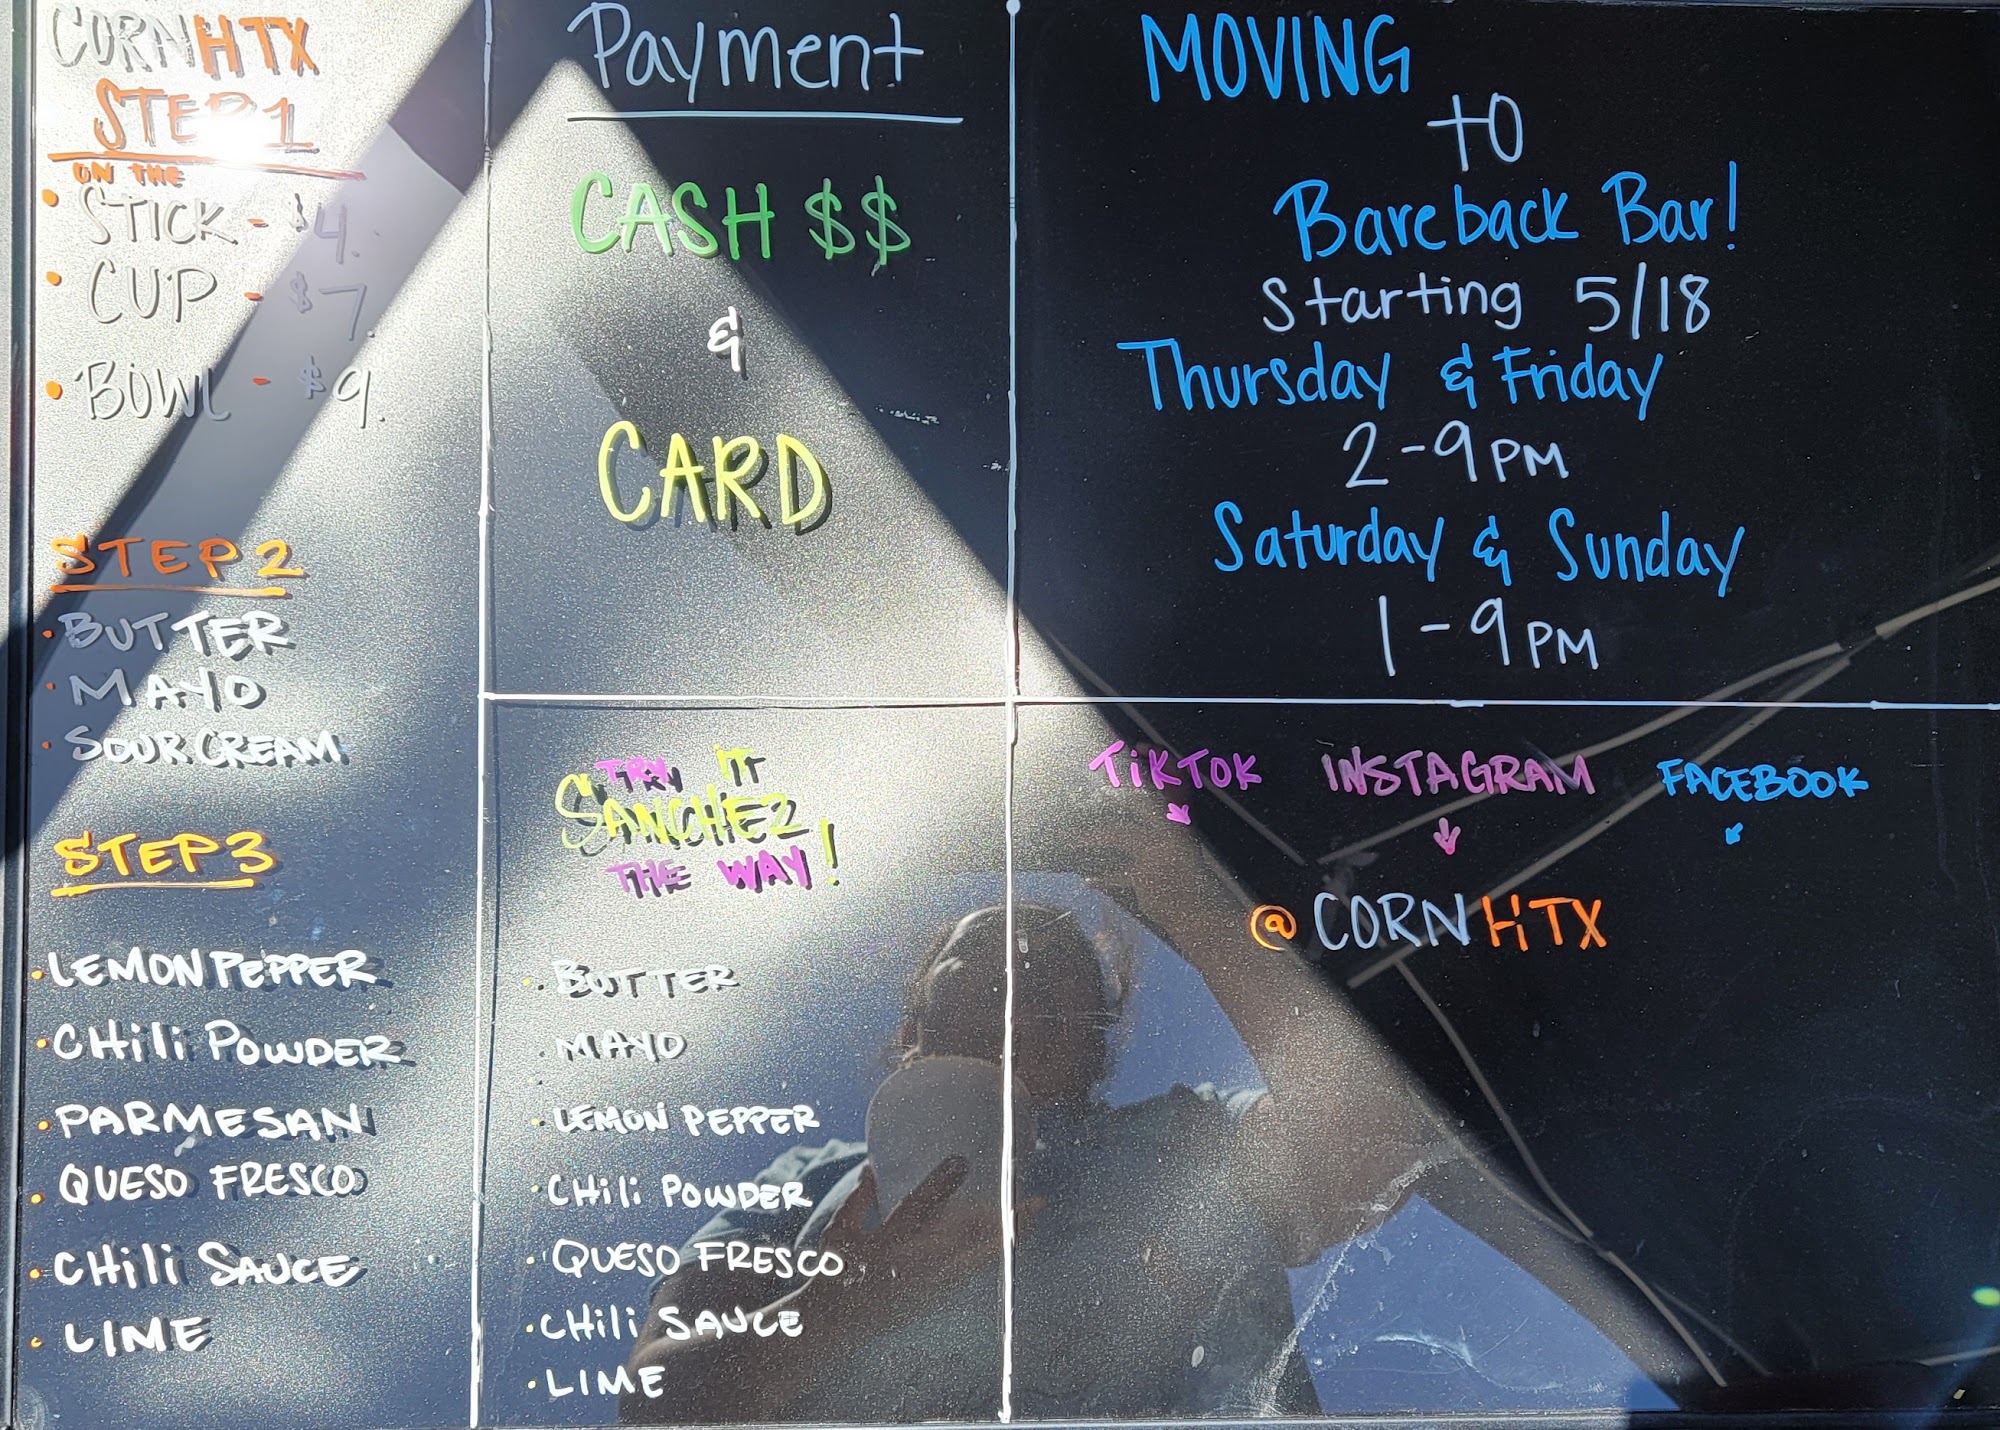 CORNHTX
STEP 1
• ON THE STICK - $4.
• CUP - $7.
• BOWL - $9.
STEP 2
• BUTTER
• MAYO
• SOUR CREAM
STEP 3
• LEMON PEPPER
• CHili POWDER
• PARMESAN
• QUESO FRESCO
• CHili SAUCE
• LIME
Payment
CASH $$
&
CARD
TRY IT
SANCHEZ
THE WAY!
• BUTTER
• MAYO
• LEMON PEPPER
• CHili POWDER
• QUESO FRESCO
• CHili SAUCE
• LIME
MOVING
to
Bareback Bar!
Starting 5/18
Thursday & Friday
2-9PM
Saturday & Sunday
1-9PM
TiKTOK INSTAGRAM FACEBOOK
@CORNHTX